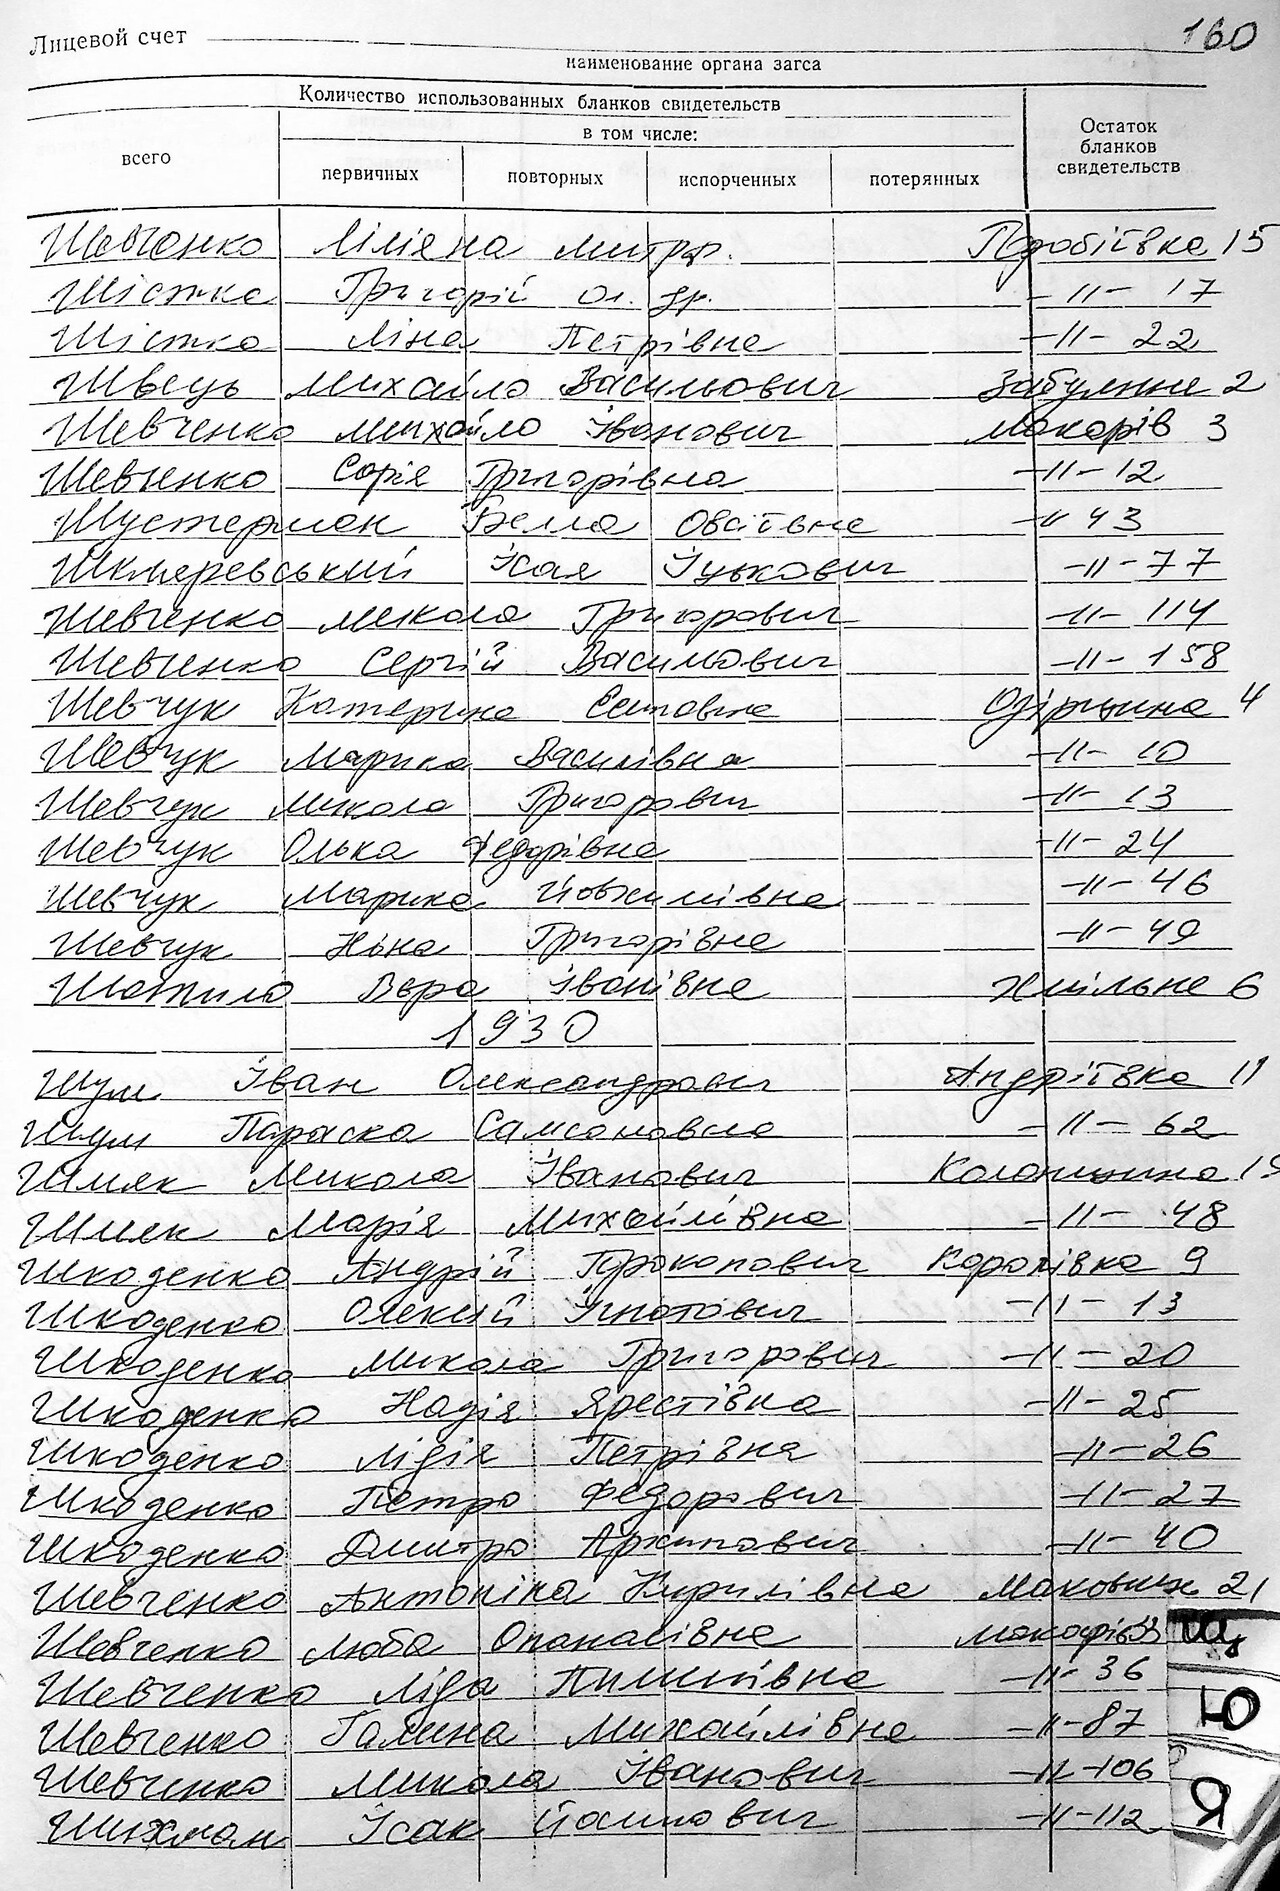 160
Лицевой счет
наименование органа загса
Количество использованных бланков свидетельств
всего
в том числе:
первичных повторных испорченных потерянных
Остаток
бланков
свидетельств
Шевченко Ліліяна Дмитр. 15
Шістка Григорій Ол. др. -11- 17
Шістка Ліна Петрівна -11- 22
Швець Михайло Васильович Забуяння 2
Шевченко Михайло Іванович Макарів 3
Шевченко Софія Григорівна -11- 12
Шустерман Бела Овсіївна -11 43
Шкляревський Ісая Іцькович -11- 77
Шевченко Микола Григорович -11- 114
Шевченко Сергій Васильович -11- 158
Шевчук Катерина Семовна Озірщина 4
Шевчук Марика Василівна -11- 10
Шевчук Микола Григорович -11- 13
Шевчук Олька Федорівна -11- 24
Шевчук Марика -11- 46
Шевчук Ніна Григорівна -11- 49
Шатило Вєра Іванівна Хмільна 6
1930
Шум Іван Олександрович Андріївка 11
Шум Параска Самсоновна -11- 62
Шмяк Микола Іванович Колонщина
Шмяк Марія Михайлівна -11- 48
Шкоденко Андрій Прокопович Королівка 9
Шкоденко Олексій Ігнатович -11- 13
Шкоденко Микола Григорович -11- 20
Шкоденко Надія Ярестівна -11- 25
Шкоденко Лідія Петрівна -11- 26
Шкоденко Петро Федорович -11- 27
Шкоденко Дмитро Архипович -11- 40
Шевченко Антоніна Кирилівна Маковище 21
Шевченко Люба Опанасівна Макарів
Щ
Шевченко Ліда Пилипівна -11- 36
Ю
Шевченко Галина Михайлівна -11- 87
Шевченко Микола Іванович -11- 106
Я
Шихман Ісак Йосипович -11- 112